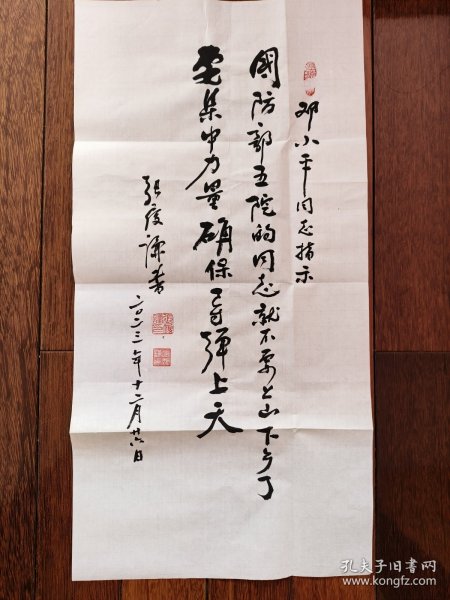 邓小平同志指示
國防部五院的同志就不要上山下乡了
要集中力量确保导弹上天
张俊谦书
二〇二三年十二月廿六日
孔夫子旧书网
www.kongfz.com